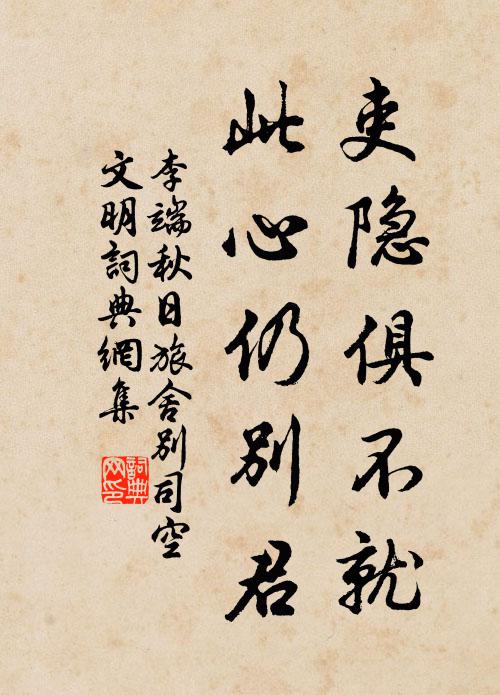 吏隐俱不就
此心仍别君
李端秋日旅舍别司空
文明詞典網集
詞典
网印